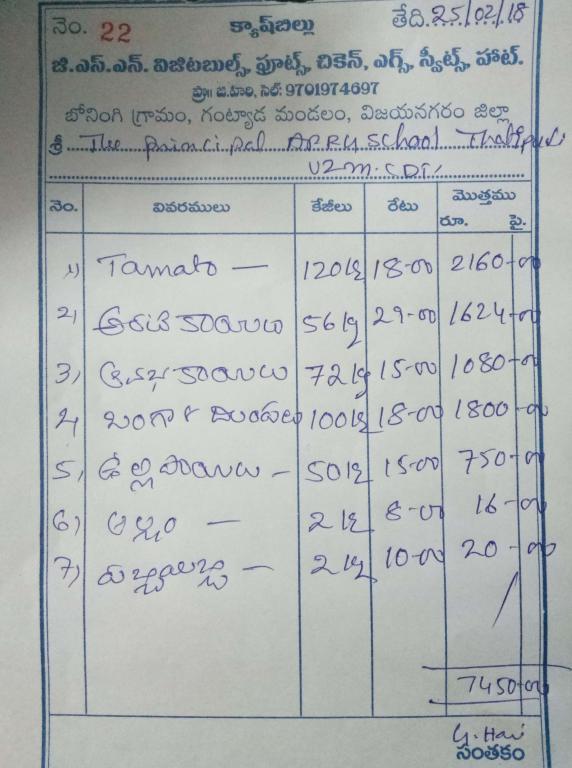 నెం. 22 క్యాష్‌బిల్లు తేది.25/02/18
జి.ఎస్.ఎన్. విజిటబుల్స్, ఫ్రూట్స్, చికెన్, ఎగ్స్, స్వీట్స్, హాట్.
ప్రొ॥ జి.హరి, సెల్: 9701974697
బోనంగి గ్రామం, గంట్యాడ మండలం, విజయనగరం జిల్లా
శ్రీ The principal APRJ School Thatipudi
VZM. (DT)
నెం. వివరములు కేజీలు రేటు మొత్తము
రూ. పై.
1) Tamato — 120kg 18-00 2160-00
2) అరటి కాయలు 56kg 29-00 1624-00
3) ఆనభ కాయలు 72kg 15-00 1080-00
4 బంగాళ దుంపలు 100kg 18-00 1800-00
5) ఉల్లి పాయలు — 50kg 15-00 750-00
6) అల్లం — 2kg 8-00 16-00
7) — 2kg 10-00 20-00
7450-00
G. Hari
సంతకం